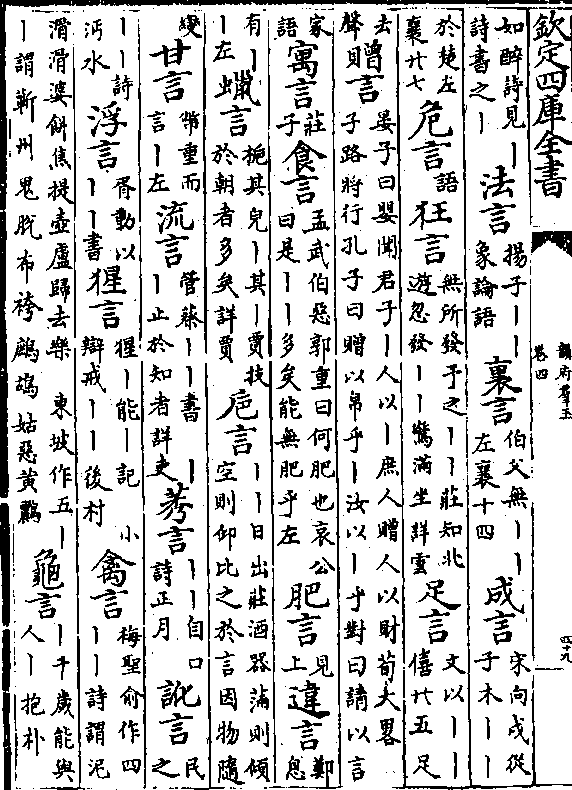 欽定四庫全書
韻府羣玉
卷四
四十九
如醉詩見丨
詩書之丨
法言
揚子丨丨
象論語
裏言
伯父無丨丨
左襄十四
成言
宋向戌從
子木丨丨
於楚左
襄廿七
危言
語
狂言
無所發予之丨丨莊知北
遊忽發丨丨驚滿坐詳靈
足言
文以丨丨
僖廿五足
去
聲貝
贈言
晏子曰嬰聞君子丨人以丨庶人贈人以財荀大畧
子路將行孔子曰贈以帛乎丨汝以丨乎對曰請以言
家
語
寓言
莊
子
食言
孟武伯惡郭重曰何肥也哀公
曰是丨丨多矣能無肥乎左
肥言
見
上
違言
鄭
息
有丨
丨左
蠟言
梔其皃丨其丨賈技
於朝者多矣詳賈
巵言
丨丨日出莊酒器滿則傾
空則仰比之於言因物隨
變
甘言
幣重而
言丨左
流言
管蔡丨丨書丨
丨止於知者詳叟
莠言
丨丨自口
詩正月
訛言
民
之
丨丨詩
沔水
浮言
胥動以
丨丨書
猩言
猩丨能丨記 小
辯戒丨丨後村
禽言
梅聖俞作四
丨丨詩謂泥
滑滑婆餅焦提壺盧歸去樂 東坡作五丨
丨謂蘄州鬼脫布袴姑惡黃
龜言
丨千歲能與
人丨抱朴